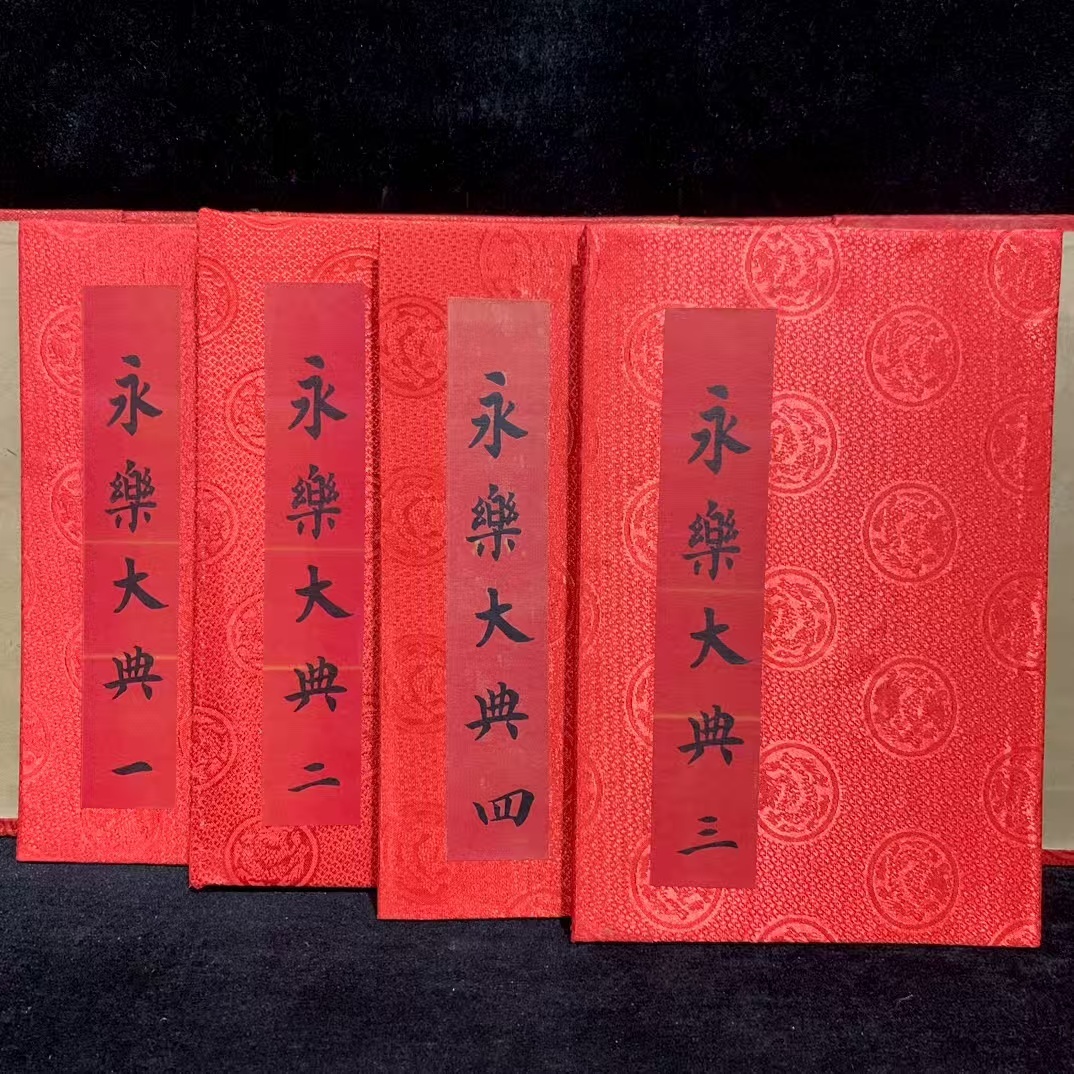 永樂大典一
永樂大典二
永樂大典四
永樂大典三